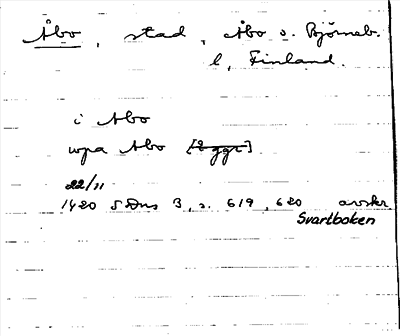 Åbo, stad, Åbo o. Björneb.
l, Finland.
i Abo
upa Abo [2 ggr]
22/11
1420 SDns 3, s. 619, 620 avskr.
Svartboken